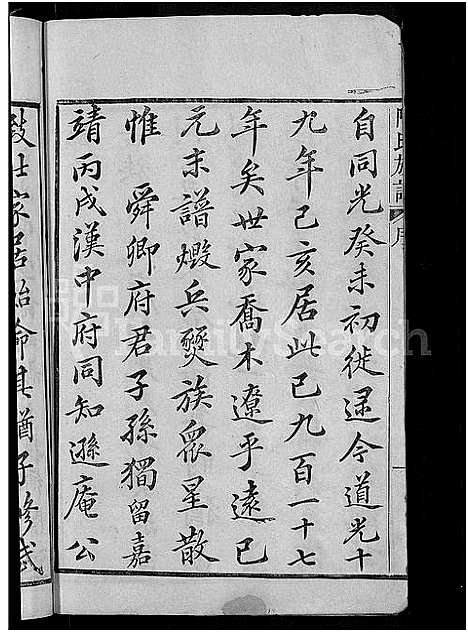 自同光癸未初徙逕今道光十
九年己亥居此已九百一十七
年矣世家喬木遼乎遠已
元末譜燬兵燹族眾星散
惟 舜卿府君子孫獨留嘉
靖丙戌漢中府同知遜庵公
致仕家居始命其猶子修武
氏族譜 序
一
FamilySearch